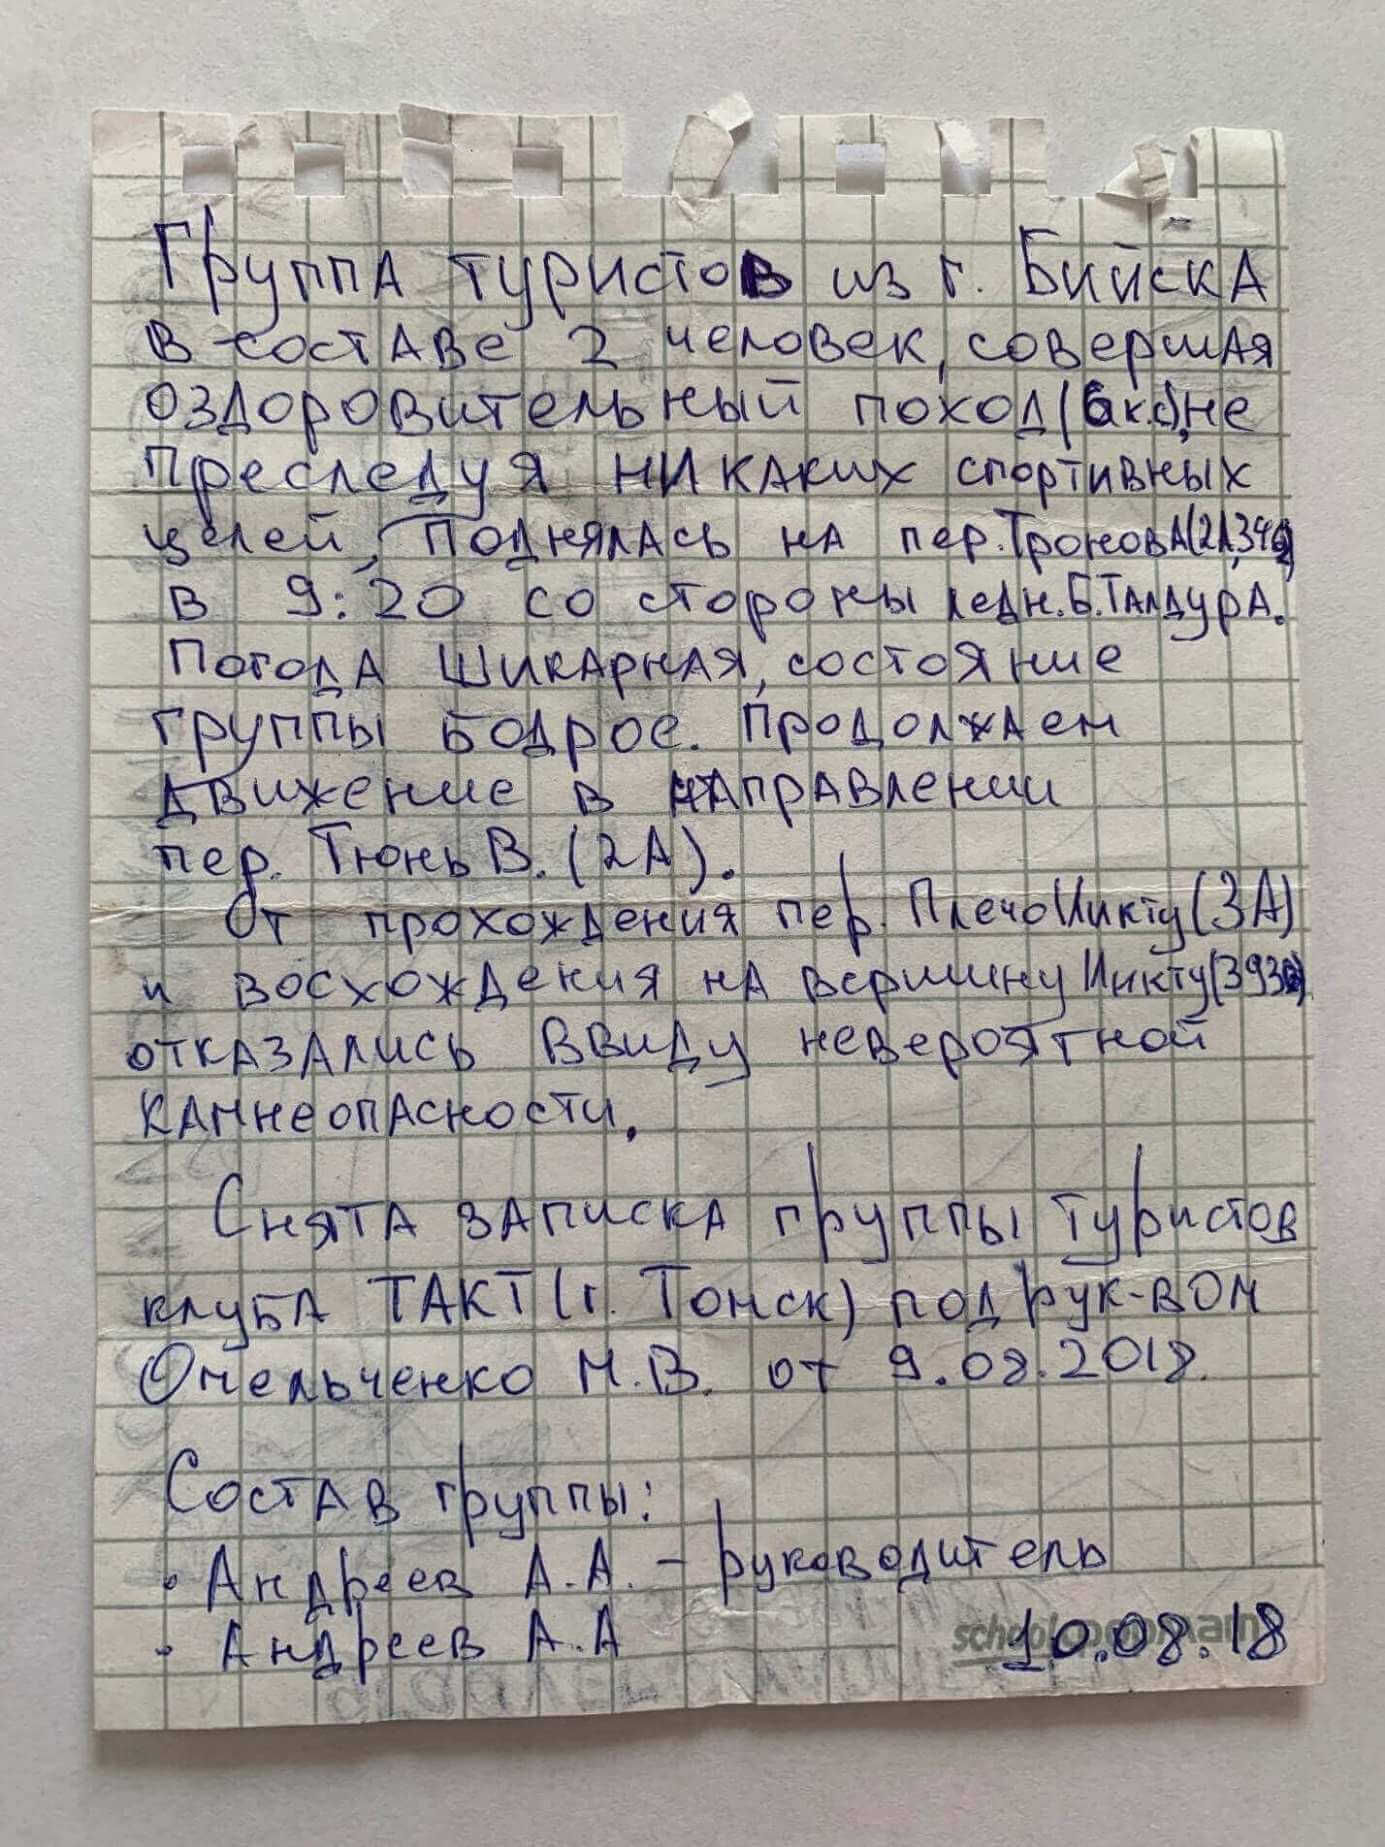 Группа туристов из г. Бийска
в составе 2 человек, совершая
оздоровительный поход (6к.с), не
преследуя никаких спортивных
целей, поднялась на пер. Тронова (2А,
в 9:20 со стороны ледн. Б. Талдура.
Погода шикарная, состояние
группы бодрое. Продолжаем
движение в направлении
пер. Тюнь В. (2А).
От прохождения пер. Плечо Иикту (3А)
и восхождения на вершину Иикту (
отказались ввиду невероятной
камнеопасности.
Снята записка группы туристов
клуба ТАКТ (г. Томск) под рук-вом
Омельченко М.В. от 9.08.2018.
Состав группы:
• Андреев А.А. – руководитель
• Андреев А.А
10.08.18